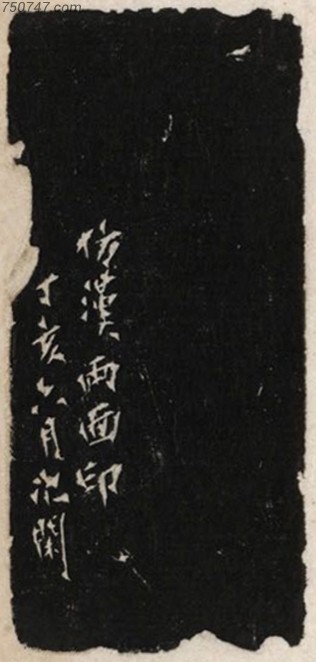 750747.com
仿漢兩面印
丁亥六月